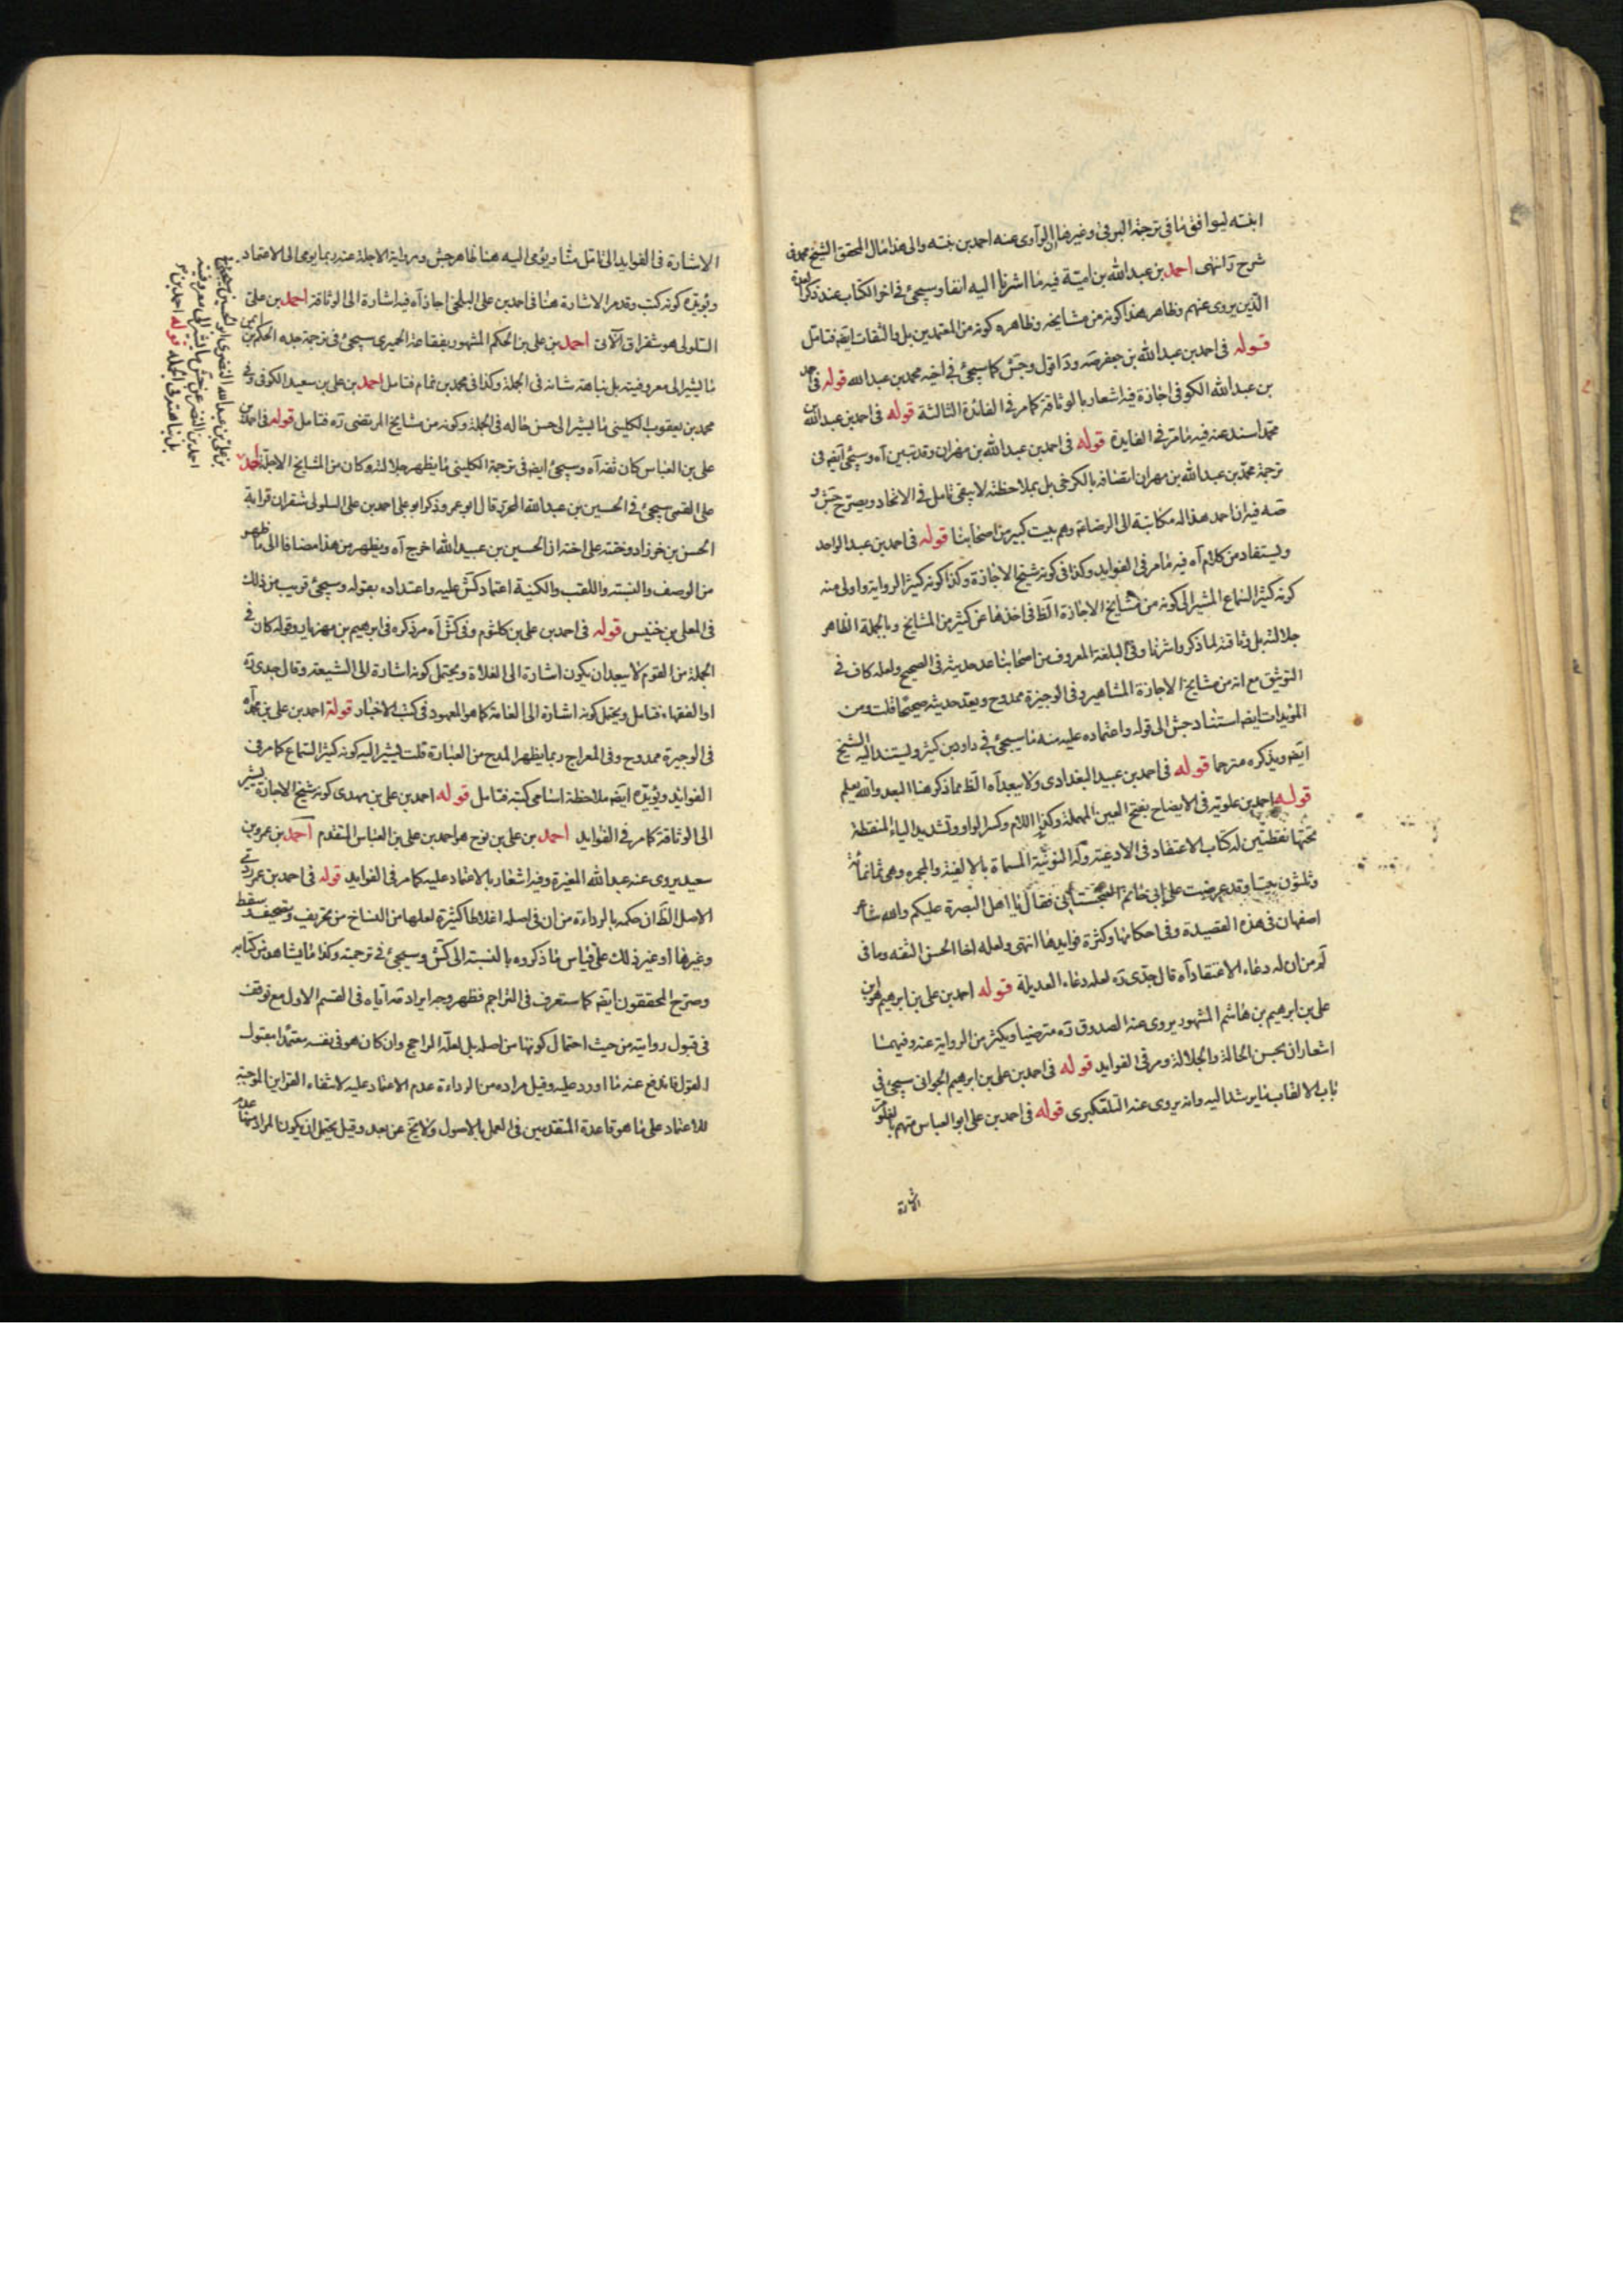 ابنته ليوافق ما في ترجمة البرقي وغيرها ان الراوى عنه احمد بن بنته والى هذا مال المحقق الشيخ محمد فى
شرح انتهى احمد بن عبدالله بن امية فيه ما اشرنا اليه انفا وسيجئ في اخر الكتاب عند ذكر
الذين يروى عنهم وظاهر هذا كونه من مشايخه وظاهره كونه من المعتمدين بل والثقات ايضه فتامل
قوله فى احمد بن عبدالله بن جعفر اقول وجش كما سيجئ في اخيه محمد بن عبدالله قوله فى احمد
بن عبدالله الكوفى اجازة فيه اشعار بالوثاقة كما مر في الفائدة الثالثة قوله فى احمد بن عبدالله بن
محمد اسند عنه فيه ما مر في الفايدة قوله فى احمد بن عبدالله بن مهران وقد تبين آه وسيجئ ايضه فى
ترجمة محمد بن عبدالله بن مهران اتصافه بالكرخى بل بملاحظته لا يبقى تامل فى الاتحاد ويصرح جش و
صه فيه ان احمد هذا له مكاتبة الى الرضا وهم بيت كبير من اصحابنا قوله فى احمد بن عبد الواحد
ويستفاد من كلام آه فيه ما مر فى الفوايد وكذا فى كونه شيخ الاجازة وكذا كونه كثير الرواية واولى منه
كونه كثير السماع المشير الى كونه من مشايخ الاجازة الظ فى اخذها عن كثير من المشايخ وبالجملة الظاهر
جلالته بل وثاقته لما ذكر واشرنا وفى البلغة المعروف من اصحابنا عد حديثه فى الصحيح ولعله كاف فى
التوثيق مع انه من مشايخ الاجازة المشاهير وفى الوجيزة ممدوح ويعد حديثه صحيحا قلت ومن
المؤيدات ايضه استناد جش الى قوله واعتماده عليه منه ما سيجئ في داود بن كثير ويستند اليه الشيخ
ايضه ويذكره مترحما قوله فى احمد بن عبيد البغدادى ولا يبعد آه الظ مما ذكر هنا البعد والله يعلم
قوله احمد بن علوية فى الايضاح بفتح العين المهملة وكذا اللام وكسر الواو وتشديد الياء المنقطة
تحتها نقطتين له كتاب الاعتقاد فى الادعية وله النونية المسماة بالالفية والمجمره وهى ثمانمائة
وثلثون بيتا وقد عرضت على ابى حاتم السجستانى فقال يا اهل البصرة عليكم والله شاعر
اصفهان فى هذه القصيدة وفى احكامها وكثرة فوايدها انتهى ولعله اخا الحسن الثقه وما فى
لم من ان له دعاء الاعتقاد آه قال جدى ره لعله دعاء العديلة قوله احمد بن على بن ابرهيم هو ابن
على بن ابرهيم بن هاشم المشهور يروى عنه الصدوق ره مترضيا ويكثر من الرواية عنه وفيهما
اشعار ان بحسن الحالة والجلالة ومر فى الفوايد قوله فى احمد بن على بن ابرهيم الجوانى سيجئ في
باب الالقاب ما يرشد اليه وانه يروى عنه التلعكبرى قوله فى احمد بن على ابو العباس متهم بالغلو
الاشارة
الاشارة فى الفوايد الى تامل منا ويؤمى اليه هنا ظاهر جش ورواية الاجلة عنه ربما يومى الى الاعتماد
ويؤيده كونه كتب وقد مر الاشارة هنا فى احمد بن على البلخى اجازآه فيه اشارة الى الوثاقة احمد بن على
السلولى هو شقران الآتى احمد بن على بن الحكم المشهور بفقاعة الحميرى سيجئ فى ترجمة جده الحكم بن ايمن
ما يشير الى معروفيته بل نباهة شانه فى الجملة وكذا فى محمد بن تمام فتامل احمد بن على بن سعيد الكوفى وفى
محمد بن يعقوب الكلينى ما يشير الى حسن حاله فى الجملة وكونه من مشايخ المرتضى ره فتامل قوله فى احمد بن
على بن العباس كان ثقه آه وسيجئ ايضه فى ترجمة الكلينى ما يظهر جلالته وكان من المشايخ الاجلة احمد بن
على القمى سيجئ في الحسين بن عبدالله المحرر قال ابو عمرو ذكر ابو على احمد بن على السلولى شقران قرابة
الحسن بن خرزاد وختنه على اخته ان الحسين بن عبيدالله اخرج آه ويظهر من هذا مضافا الى ما ظهر
من الوصف والنسبة واللقب والكنية اعتماد كش عليه واعتداده بقوله وسيجئ قريب من ذلك
فى المعلى بن خنيس قوله فى احمد بن على بن كلثوم وفى كش آه مر ذكره فى ابرهيم بن مهزيار وقوله كان فى
الجملة من القوم لا يبعد ان يكون اشارة الى الغلاة ويحتمل كونه اشارة الى الشيعة وقال جدى ره
او الفقهاء فتامل ويحتمل كونه اشارة الى العامة كما هو المعهود فى كتب الاخبار قوله احمد بن على بن محمد آه
فى الوجيزة ممدوح وفى المعراج ربما يظهر المدح من العبارة قلت يشير اليه كونه كثير السماع كما مر فى
الفوايد ويؤيده ايضه ملاحظة اسامى كتبه فتامل قوله احمد بن على بن مهدى كونه شيخ الاجازة يشير
الى الوثاقة كما مر في الفوايد احمد بن على بن نوح هو احمد بن على بن العباس المتقدم احمد بن عمرو بن
سعيد يروى عنه عبدالله المغيرة وفيه اشعار بالاعتماد عليه كما مر فى الفوايد قوله فى احمد بن عمر ردئ
الاصل الظ ان حكمه بالرداءة من ان فى اصله اغلاطا كثيرة لعلها من النساخ من تحريف وتصحيف وسقط
وغيرها او غير ذلك على قياس ما ذكروه بالنسبة الى كش وسيجئ فى ترجمته وكذا ما يشاهد من كتابه
وصرح المحققون ايضه كما ستعرف فى التراجم فظهر وجه ايراد مه اياه فى القسم الاول مع توقفه
فى قبول روايته من حيث احتمال كونها من اصله بل لعله الراجح وان كان هو فى نفسه معتمدا مقبول
القول فاندفع عنه ما اورد عليه وقيل مراده من الرداءة عدم الاعتماد عليه لانتفاء القراين الموجبة
للاعتماد على ما هو قاعدة المتقدمين فى العمل بالاصول ولا يخ عن بعد وقيل يحتمل ان يكون المراد منها عدم
بن على بن عبدالله النضرى ابو الحسن سيجئ فى
احمد بن النضر عن جش ما يشير الى معروفيته
بل نباهته فى الجملة قوله احمد بن